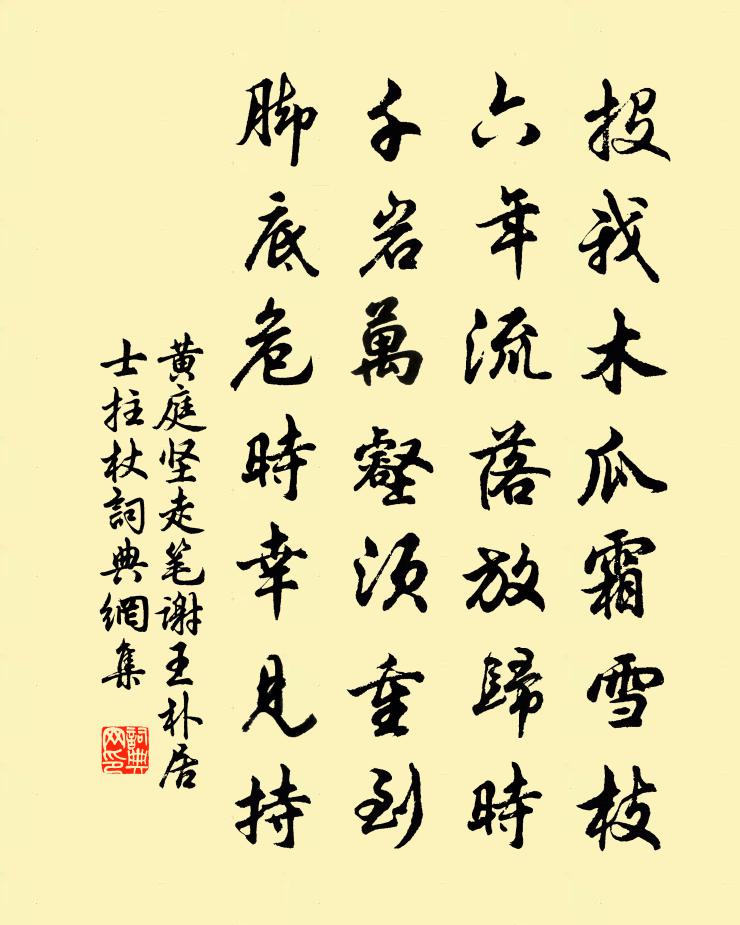 投我木瓜霜雪枝
六年流落放歸時
千岩萬壑須重到
脚底危時幸見持
黄庭坚走笔谢王朴居
士拄杖詞典網集
詞典网印